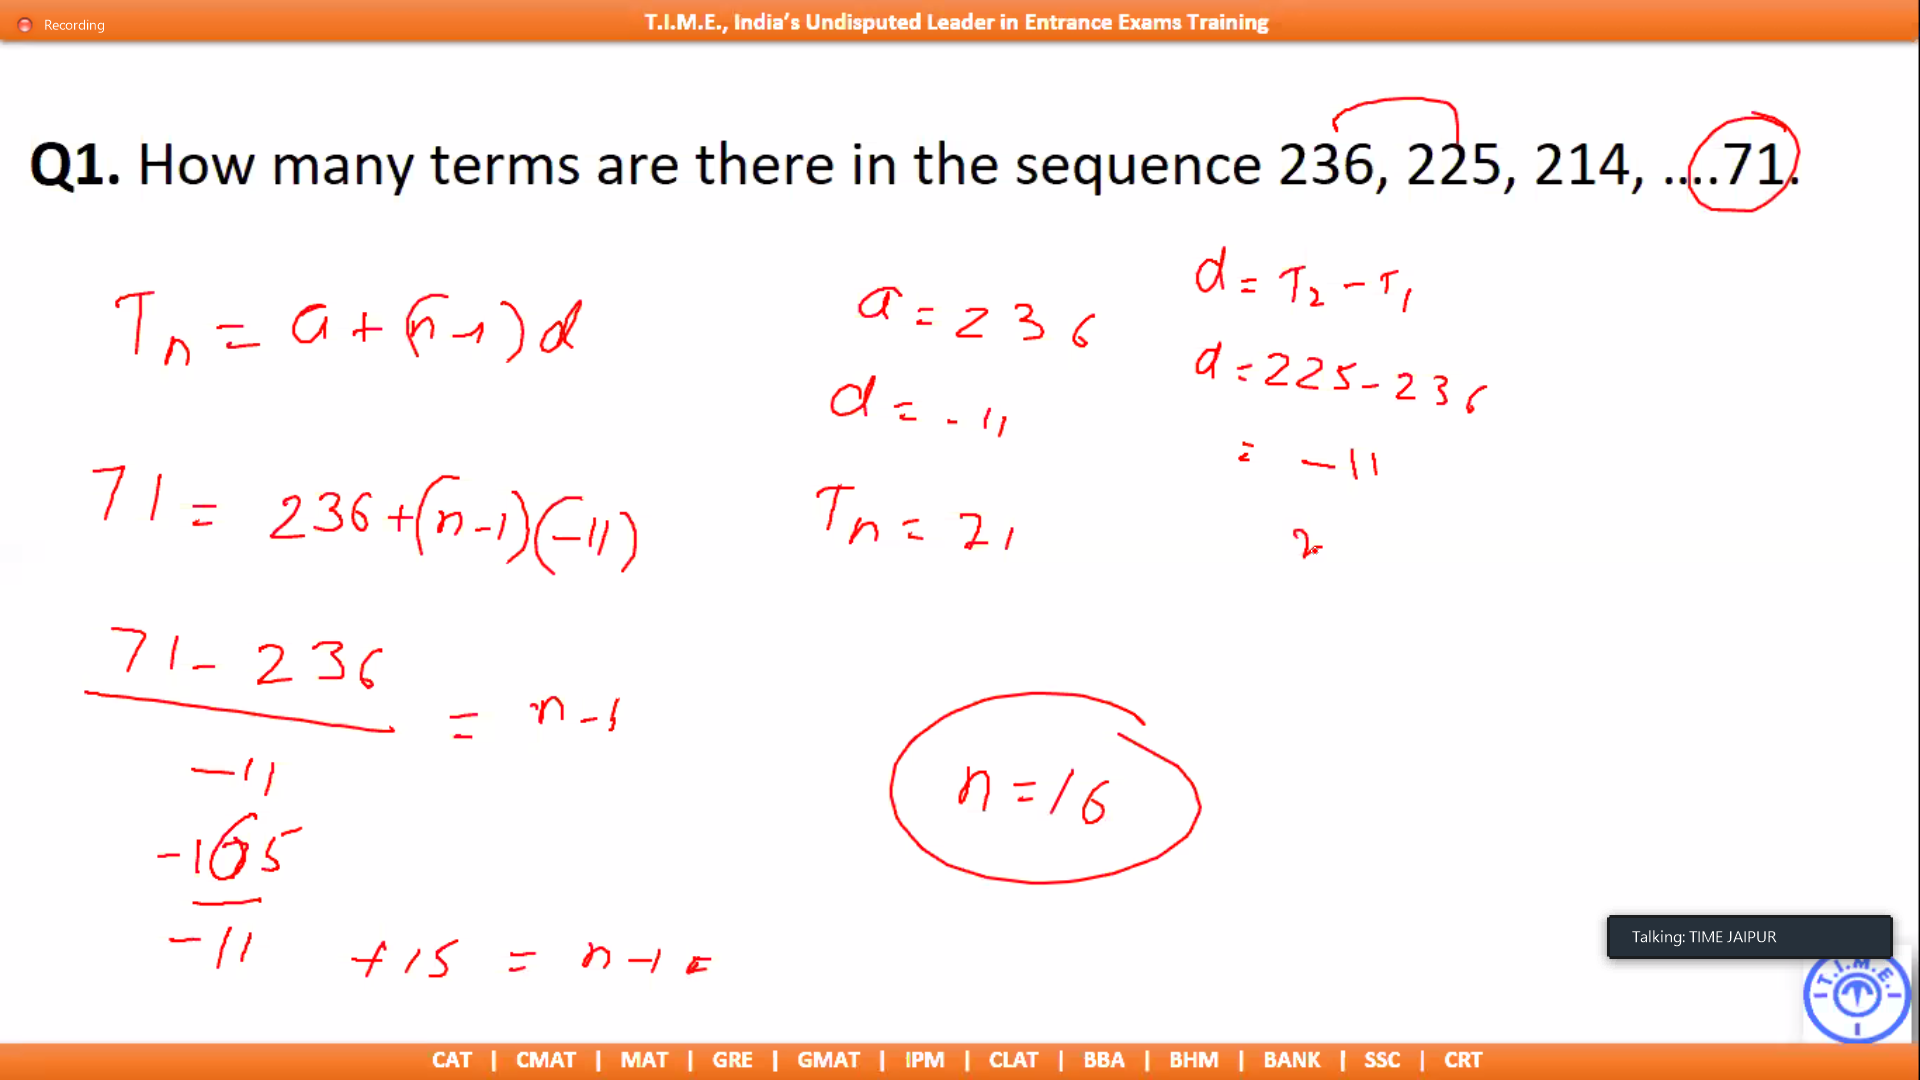 Recording
T.I.M.E., India's Undisputed Leader in Entrance Exams Training
Q1. How many terms are there in the sequence 236, 225, 214, ....71.
Tn = a + (n-1)d
a = 236
d = T2 - T1
d = 225 - 236
d = -11
= -11
71 = 236 + (n-1)(-11)
Tn = 71
2
71 - 236
= n-1
-11
n = 16
-165
-11
+15 = n-1 =
Talking: TIME JAIPUR
T.I.M.E.
CAT | CMAT | MAT | GRE | GMAT | IPM | CLAT | BBA | BHM | BANK | SSC | CRT